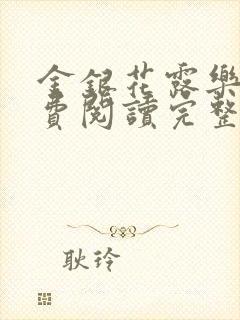 金銀花露樂
費閱讀完整
耿玲